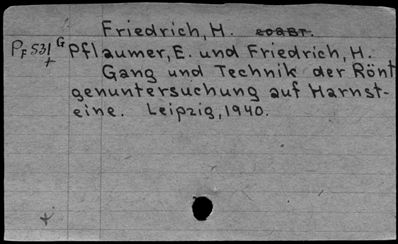 Friedrich, H.
PF 531 G Pflaumer, E. und Friedrich, H.
+
Gang und Technik der Rönt
genuntersuchung auf Harnst-
eine. Leipzig, 1940.
+